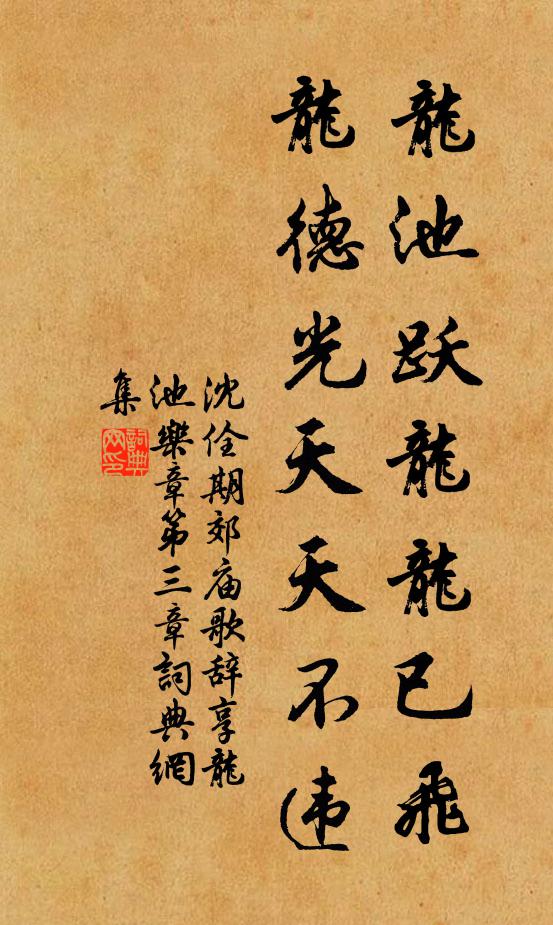 龍池跃龍龍已飛
龍德光天天不违
沈佺期郊庙歌辞享龍
池樂章第三章詞典網
集
詞典網印